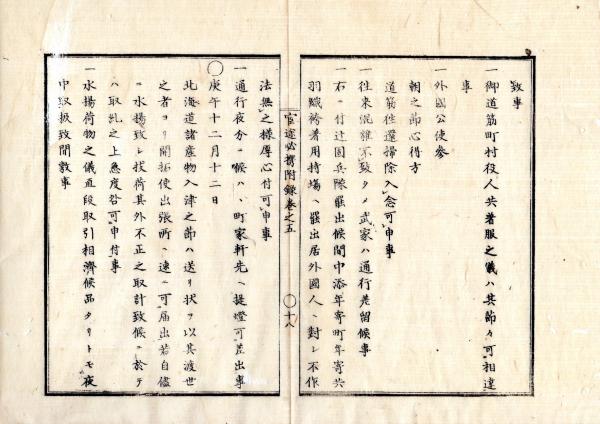 致事
一御道筋町村役人共着服之儀ハ其節々可相達
事
一外國公使參
朝之節心得方
道筋往還掃除入念可申事
一往来混雑不致タメ武家ハ通行差留候事
一右ニ付辻固兵隊罷出候間中添年寄町年寄共
羽織袴着用持場ヘ罷出居外國人ヘ對シ不作
官途必携附録巻之五
〇十八
法無之様厚心付可申事
一通行夜分ニ候ハヽ町家軒先ヘ提燈可差出事
〇庚午十二月十二日
北海道諸産物入津之節ハ送リ状ヲ以其渡世
之者ヨリ開拓使出張所ヘ速ニ可届出若自儘
ニ水揚致シ拔荷其外不正之取計致候ニ於テ
ハ取糺之上急度咎可申付事
一水揚荷物之儀直段取引相濟候品タリトモ夜
中取扱致間敷事